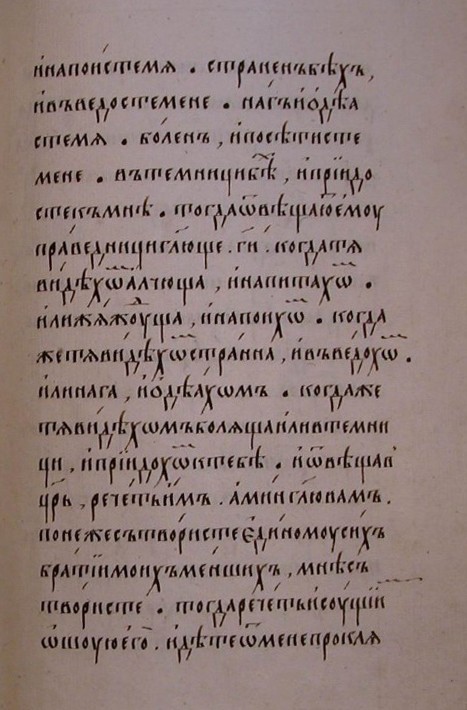 и҆напои́стемѧ . стра́ненъбѣ́хъ,
и҆въведо́стемене . на́гъи҆ѻ҆дѣ́ꙗ
стемѧ . бо́ленъ , и҆посѣти́сте
мене . вътемни́цибѣⷯ , и҆прїидо́
стекъмнѣ . тогдаѿвѣща́ютемоу
пра́ведницигл҃юще . гⷭ҇и . когда́тѧ
ви́дѣхѡⷨалчюща , и҆напита́хѡⷨ .
и҆лижѧ́жꙋща , и҆напои́хѡⷨ . когда
жетѧви́дѣхѡⷨстра́нна , и҆въведо́хѡⷨ .
и҆лина́га , и҆ѻ҆дѣ́ꙗхомъ . когда́же
тѧви́дѣхомъболѧщаи҆ливтемни
ци , и҆прїидо́хѡⷨктебѣ . и҆ѿвѣща́в
цр҃ь , рече́тъи҆́мъ . а҆ми́нгл҃ювамъ .
поне́жесътвори́стеє҆ди́номоуси́хъ
бра́тїимои́хъме́ншихъ , мнѣ́съ
твори́сте . тогдарече́тъи҆соу́щїиⷨ
ѡ҆шоу́юе҆гѡ̀ . и҆дѣ́теѿмене́проклѧ